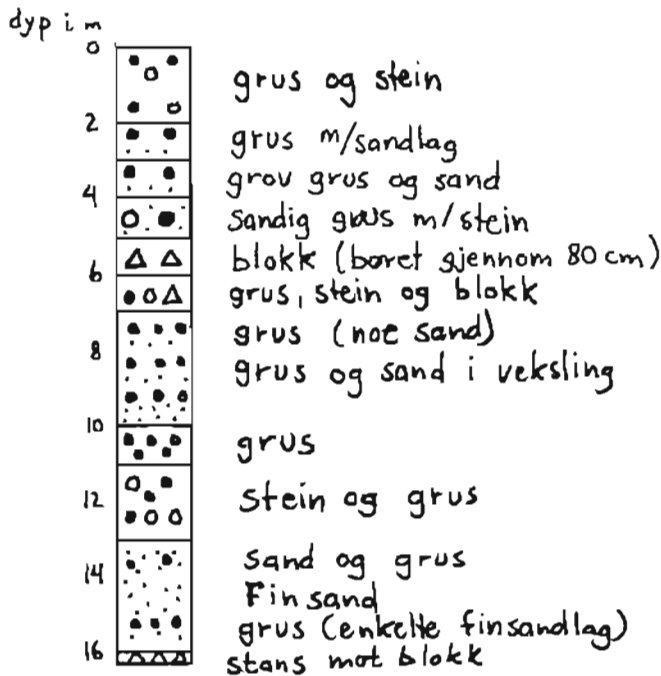 dyp i m
0
grus og stein
2
grus m/sandlag
grov grus og sand
4
Sandig grus m/stein
blokk (boret gjennom 80 cm)
6
grus, stein og blokk
grus (noe sand)
8
grus og sand i veksling
10
grus
12
Stein og grus
Sand og grus
14
Finsand
grus (enkelte finsandlag)
16
stans mot blokk